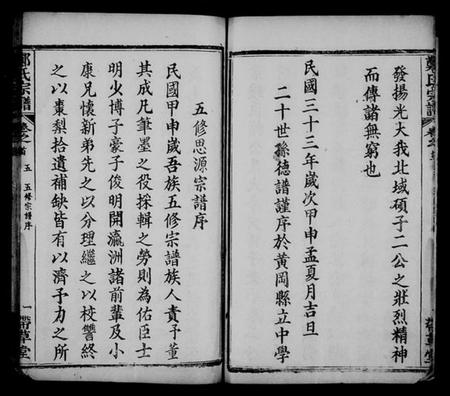 發揚光大我北域碩子二公之壯烈精神
而傳諸無窮也
民國三十三年歲次甲申孟夏月吉旦
二十世孫德譜謹序於黄岡縣立中學
五修思源宗譜序
民國甲申歲吾族五修宗譜族人責予董
其成凡筆墨之役採輯之勞則為佑臣士
明少博子豪子俊明開瀛洲諸前輩及小
康兄懷新弟先之以分理繼之以校讐終
之以棗梨拾遺補缺皆有以濟予力之所
鄭氏宗譜
卷之首
五
五修宗譜序
一
帶草堂